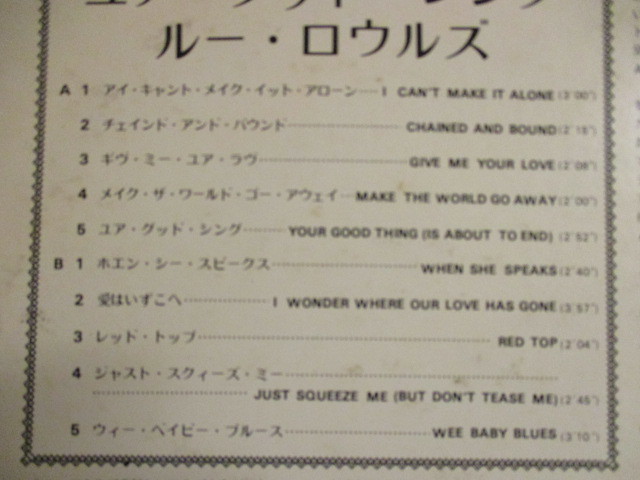 ユア・グッド・シング
ルー・ロウルズ
A 1 アイ・キャント・メイク・イット・アローン I CAN'T MAKE IT ALONE (3'00")
2 チェインド・アンド・バウンド CHAINED AND BOUND (2'15")
3 ギヴ・ミー・ユア・ラヴ GIVE ME YOUR LOVE (2'08")
4 メイク・ザ・ワールド・ゴー・アウェイ MAKE THE WORLD GO AWAY (2'00")
5 ユア・グッド・シング YOUR GOOD THING (IS ABOUT TO END) (2'52")
B 1 ホエン・シー・スピークス WHEN SHE SPEAKS (2'40")
2 愛はいずこへ I WONDER WHERE OUR LOVE HAS GONE (3'57")
3 レッド・トップ RED TOP (2'04")
4 ジャスト・スクィーズ・ミー
JUST SQUEEZE ME (BUT DON'T TEASE ME) (2'45")
5 ウィー・ベイビー・ブルース WEE BABY BLUES (3'10")